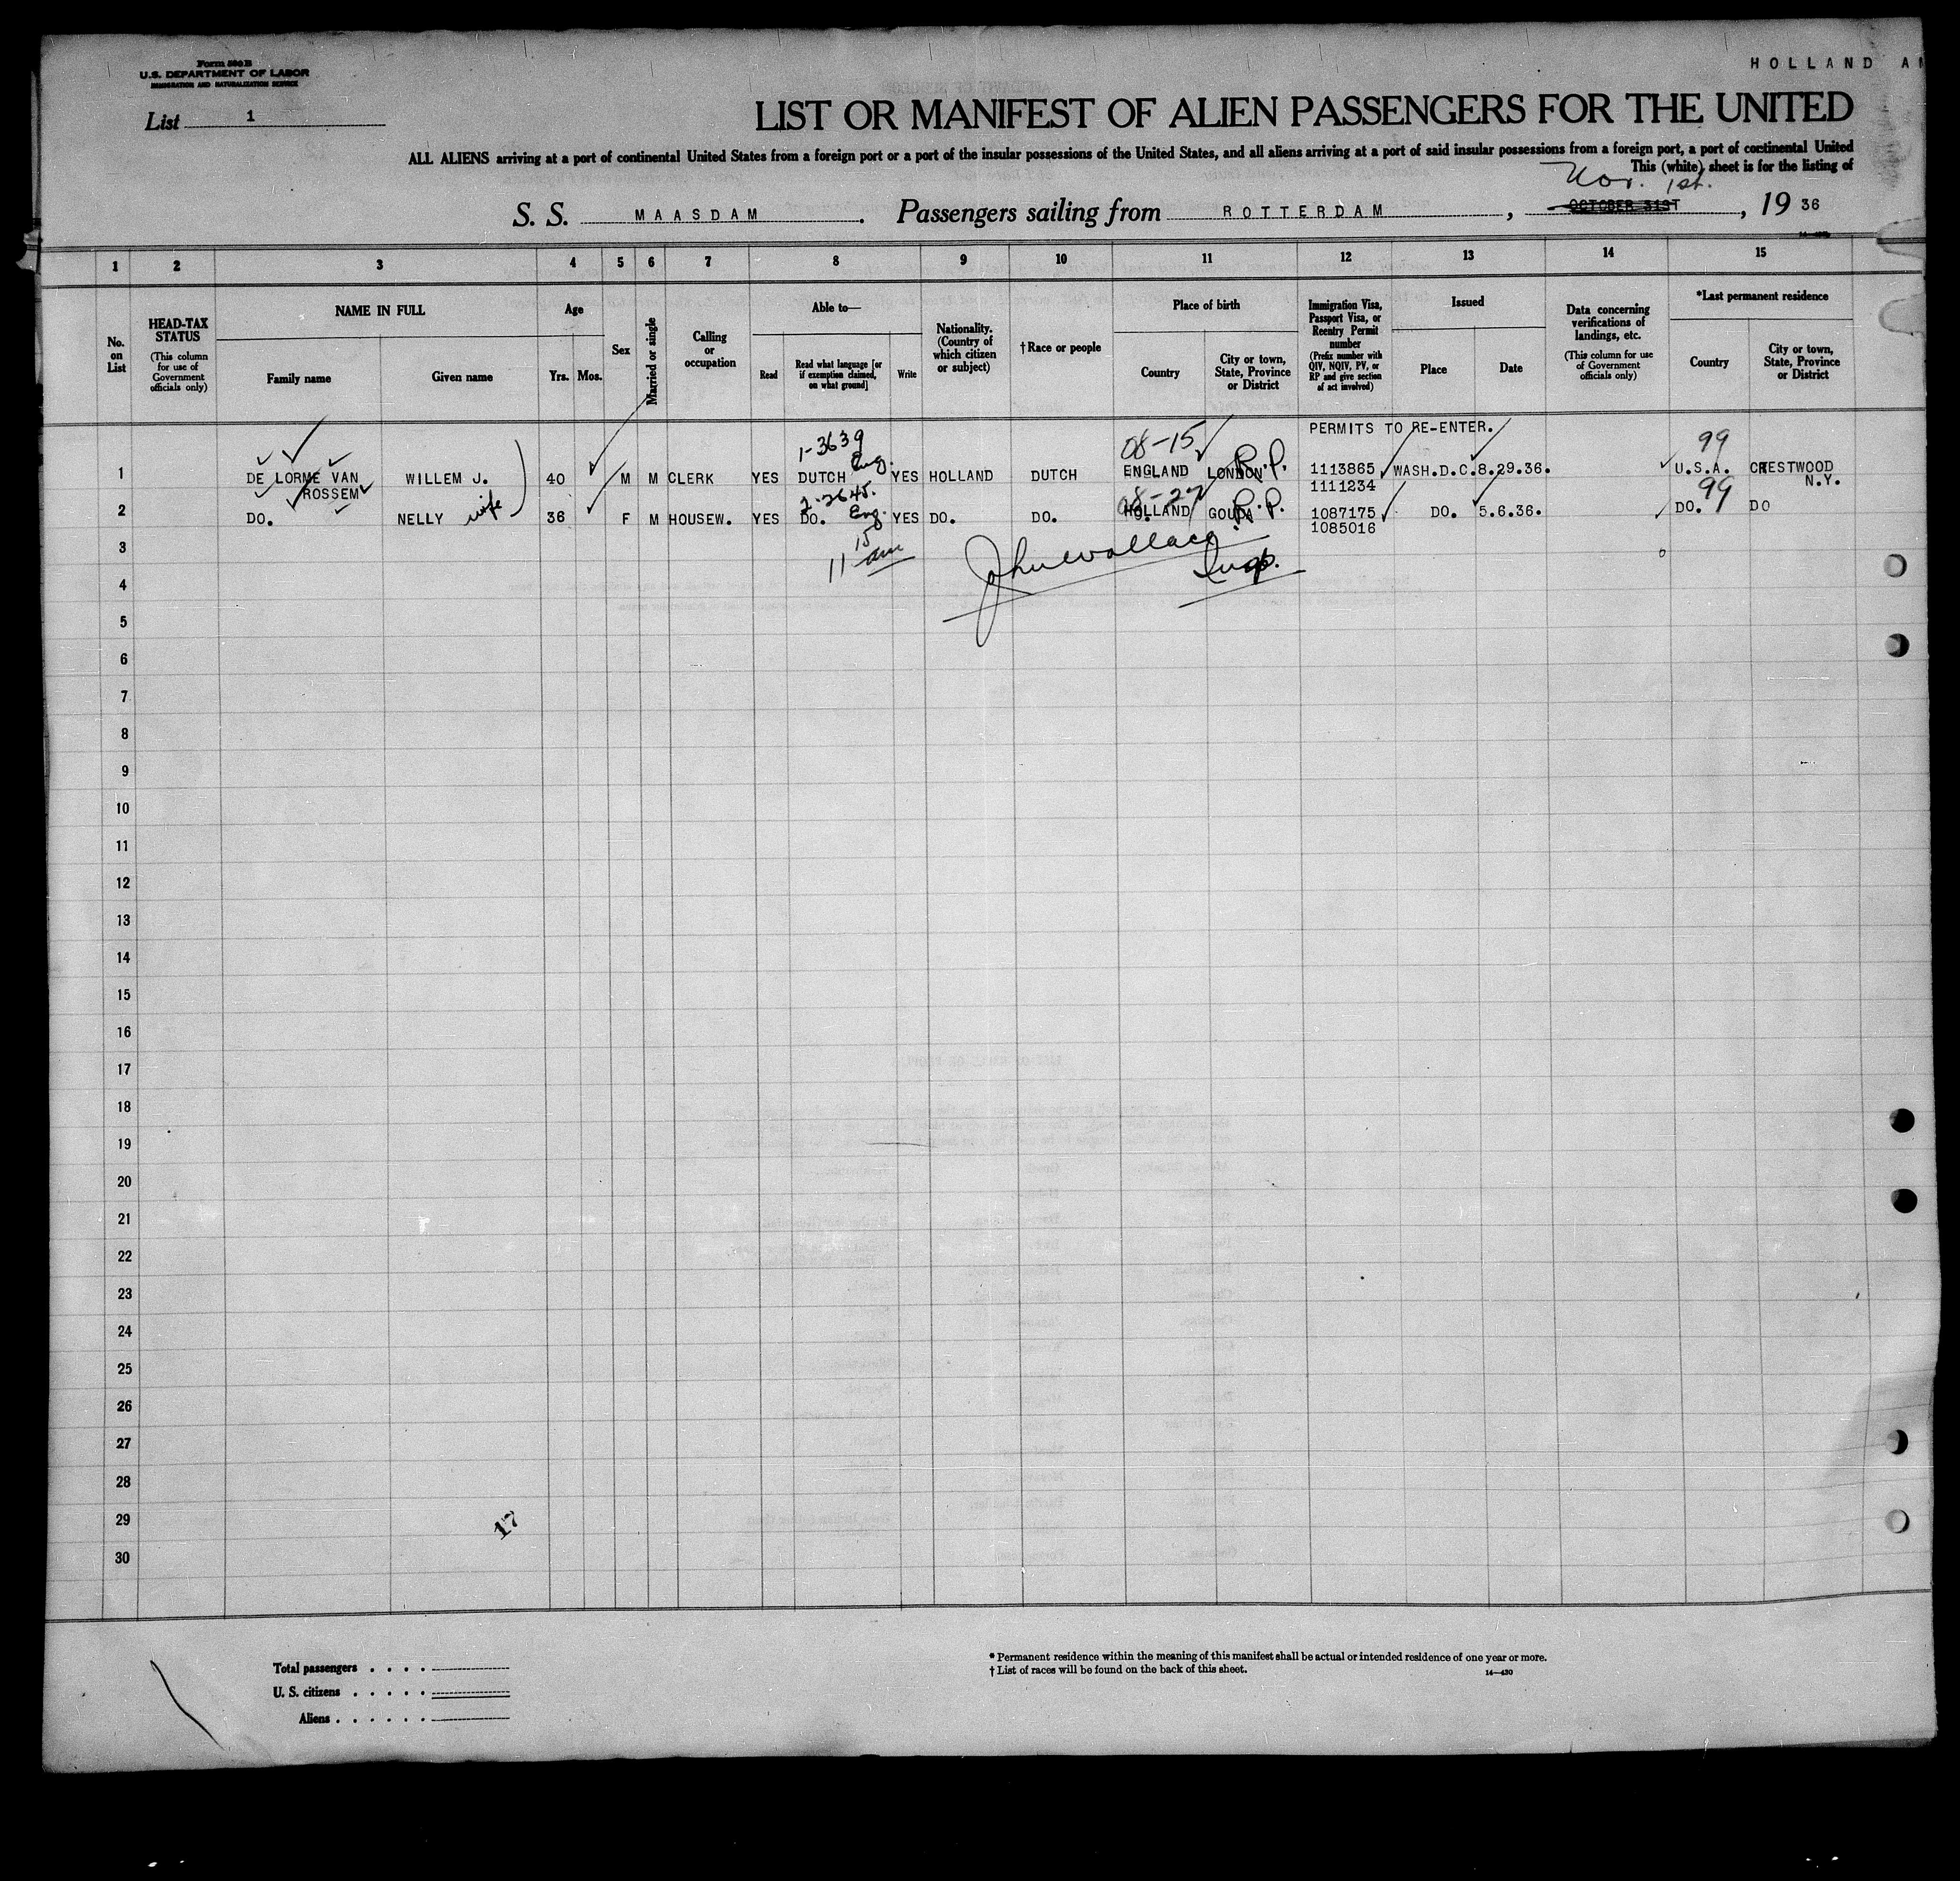 Form 500B
U.S. DEPARTMENT OF LABOR
IMMIGRATION AND NATURALIZATION SERVICE
HOLLAND A
List 1
LIST OR MANIFEST OF ALIEN PASSENGERS FOR THE UNITED
ALL ALIENS arriving at a port of continental United States from a foreign port or a port of the insular possessions of the United States, and all aliens arriving at a port of said insular possessions from a foreign port, a port of continental United
This (white) sheet is for the listing of
Nov. 1st.
S. S. MAASDAM. Passengers sailing from ROTTERDAM, OCTOBER 31ST, 19 36
1 2 3 4 5 6 7 8 9 10 11 12 13 14 15
No. on List
HEAD-TAX STATUS
(This column for use of Government officials only)
NAME IN FULL
Family name
Given name
Age
Yrs. Mos.
Sex
Married or single
Calling or occupation
Able to—
Read
Read what language [or if exemption claimed, on what ground]
Write
Nationality. (Country of which citizen or subject)
†Race or people
Place of birth
Country
City or town, State, Province or District
Immigration Visa, Passport Visa, or Reentry Permit number
(Prefix number with QIV, NQIV, PV, or RP and give section of act involved)
Issued
Place
Date
Data concerning verifications of landings, etc.
(This column for use of Government officials only)
*Last permanent residence
Country
City or town, State, Province or District
PERMITS TO RE-ENTER.
1-3639 08-15 99
1 DE LORME VAN WILLEM J. 40 M M CLERK YES DUTCH Eng. YES HOLLAND DUTCH ENGLAND LONDON R.P. 1113865 WASH.D.C. 8.29.36. U.S.A. CRESTWOOD
ROSSEM 1111234 N.Y.
2-2645. 08-27 99
2 DO. NELLY wife 36 F M HOUSEW. YES DO. Eng. YES DO. DO. HOLLAND GOUDA R.P. 1087175 DO. 5.6.36. DO. DO
1085016
11 15 am
John Wallace
Insp.
3
4
5
6
7
8
9
10
11
12
13
14
15
16
17
18
19
20
21
22
23
24
25
26
27
28
29
30
17
Total passengers
U. S. citizens
Aliens
* Permanent residence within the meaning of this manifest shall be actual or intended residence of one year or more.
† List of races will be found on the back of this sheet.
14—430